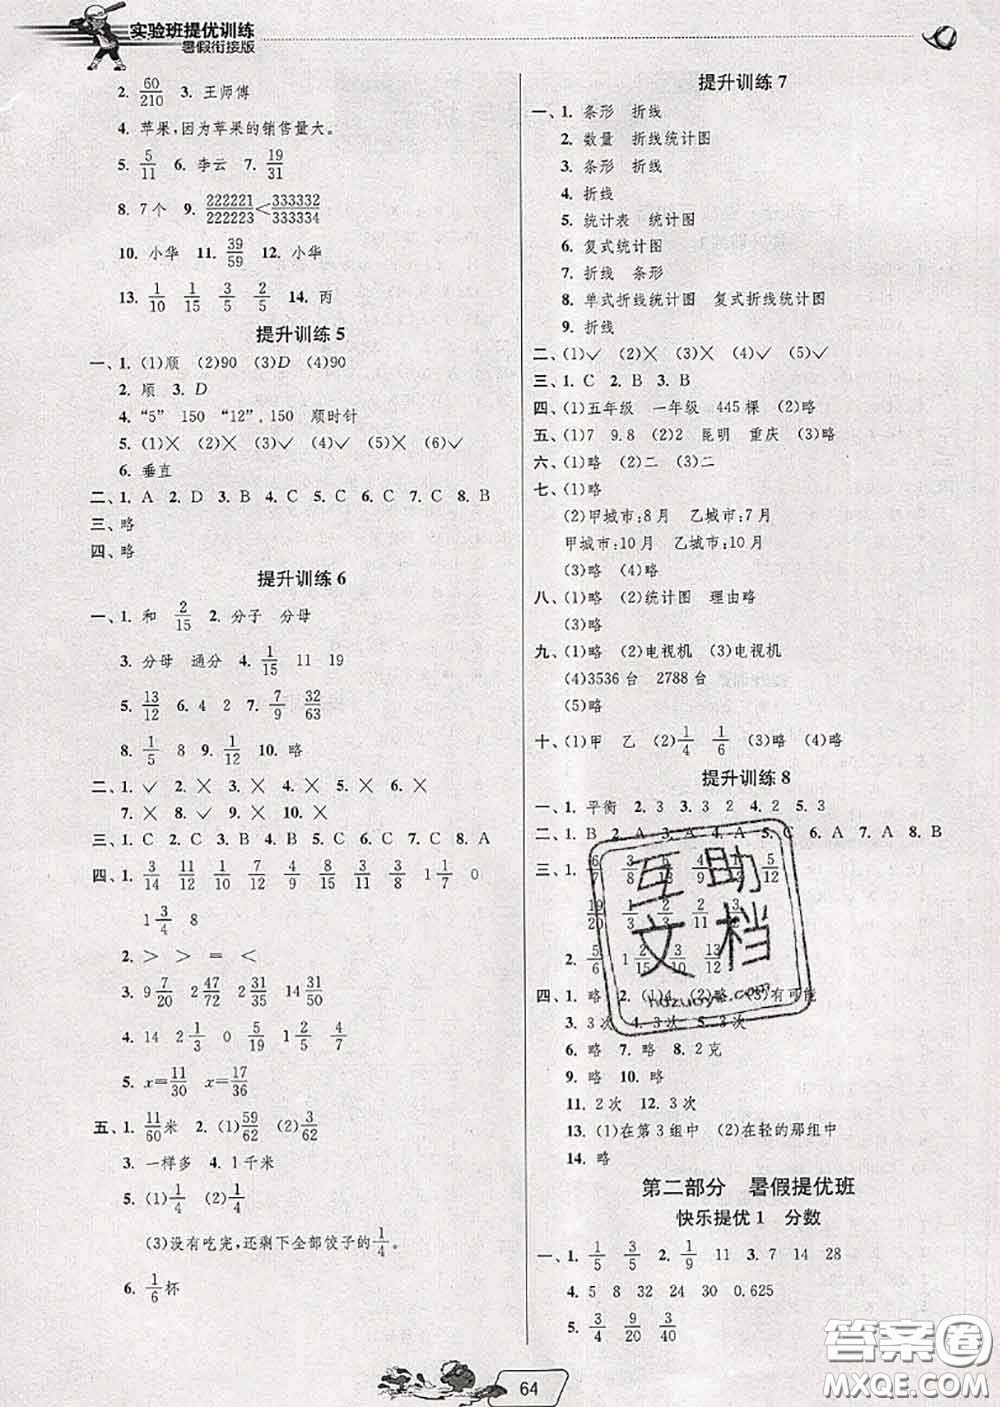 实验班提优训练
暑假衔接版
2. 60/210 3. 王师傅
4. 苹果,因为苹果的销售量大。
5. 5/11 6. 李云 7. 19/31
8. 7个 9. 222221/222223<333332/333334
10. 小华 11. 39/59 12. 小华
13. 1/10 1/15 3/5 2/5 14. 丙
提升训练5
一、1. (1)顺 (2)90 (3)D (4)90
2. 顺 3. D
4. “5” 150 “12”,150 顺时针
5. (1)╳ (2)╳ (3)✓ (4)✓ (5)╳ (6)✓
6. 垂直
二、1. A 2. D 3. B 4. C 5. C 6. C 7. C 8. B
三、略
四、略
提升训练6
一、1. 和 2/15 2. 分子 分母
3. 分母 通分 4. 1/15 11 19
5. 13/12 6. 4 2 7. 7/9 32/63
8. 1/5 8 9. 1/12 10. 略
二、1. ✓ 2. ╳ 3. ╳ 4. ╳ 5. ╳ 6. ╳
7. ╳ 8. ✓ 9. ╳ 10. ╳
三、1. C 2. C 3. B 4. C 5. B 6. C 7. C 8. A
四、1. 3/14 11/12 1/10 7/12 4/9 8/15 3/11 3/8 1 1/7 0
1 3/4 8
2. > > = <
3. 9 7/20 2 47/72 2 31/35 14 31/50
4. 14 2 1/3 0 5/19 1 5/31 1/2
5. x=11/30 x=17/36
五、1. 11/60米 2. (1)59/62 (2)3/62
3. 一样多 4. 1千米
5. (1)1/4 (2)1/4
(3)没有吃完,还剩下全部饺子的1/4。
6. 1/6杯
提升训练7
一、1. 条形 折线
2. 数量 折线统计图
3. 条形 折线
4. 折线
5. 统计表 统计图
6. 复式统计图
7. 折线 条形
8. 单式折线统计图 复式折线统计图
9. 折线
二、(1)✓ (2)╳ (3)╳ (4)✓ (5)✓
三、1. C 2. B 3. B
四、(1)五年级 一年级 445棵 (2)略
五、(1)7 9.8 (2)2 昆明 重庆 (3)略
六、(1)略 (2)二 (3)二
七、(1)略
(2)甲城市:8月 乙城市:7月
甲城市:10月 乙城市:10月
(3)略 (4)略
八、(1)略 (2)统计图 理由略
(3)略
九、(1)略 (2)电视机 (3)电视机
(4)3536台 2788台
(5)略
十、(1)甲 乙 (2)1/4 1/6 (3)略 (4)略
提升训练8
一、1. 平衡 2. 3 3. 3 2 4. 2 5. 3
二、1. B 2. A 3. A 4. A 5. C 6. A 7. A 8. B
三、1. 6/7 3/8 4/9 5/12
19/20 1/3 2/3
2. 5/6 1 2/15 3/10 13/12
四、1. 略 2. (1)4 (2)略 (3)有可能
3. 3次 4. 3次 5. 3次
6. 略 7. 略 8. 2克
9. 略 10. 略
11. 2次 12. 3次
13. (1)在第3组中 (2)在轻的那组中
14. 略
第二部分 暑假提优班
快乐提优1 分数
一、1. 1/5 3/5 2. 1/9 11 3. 7 14 28
4. 5 8 32 24 30 0.625
5. 3/4 9/20 3/40
64
互助文档
hdzuoye.com
答案圈
MXQE.COM